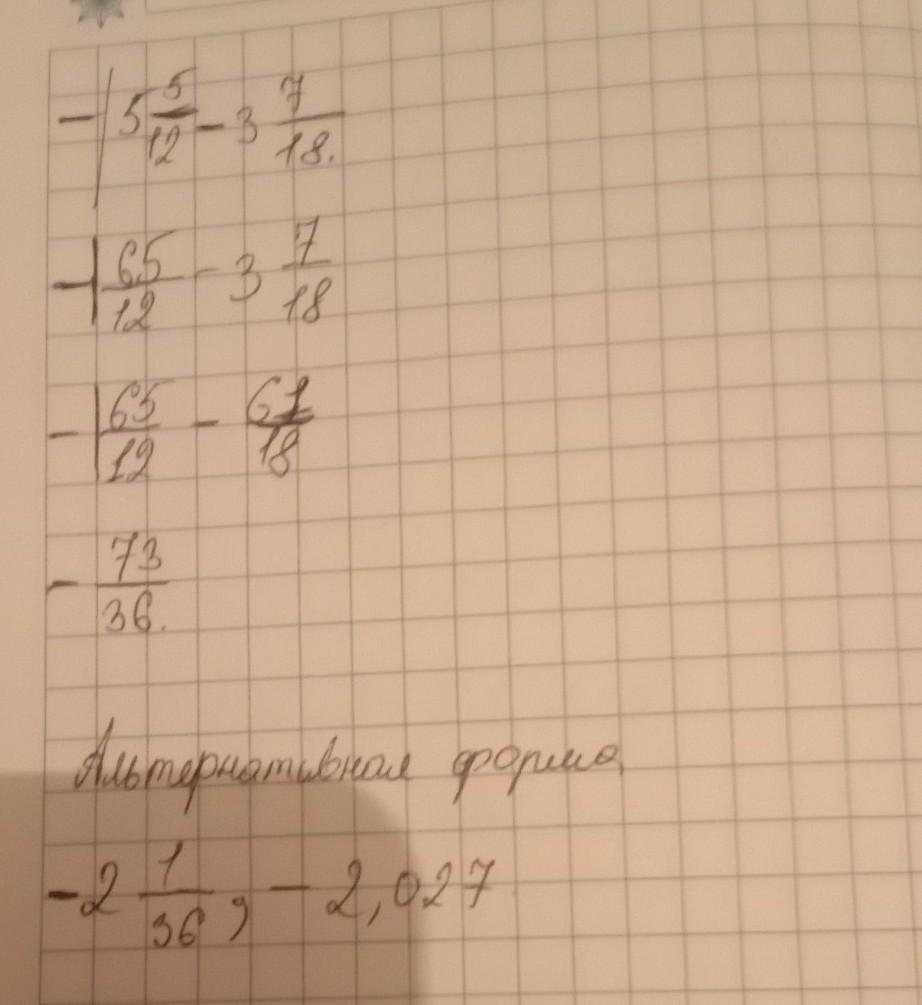 -|5 5/12 - 3 7/18.
-|65/12 - 3 7/18
-|65/12 - 61/18
- 73/36.
Альтернативная форма
-2 1/36, - 2,027